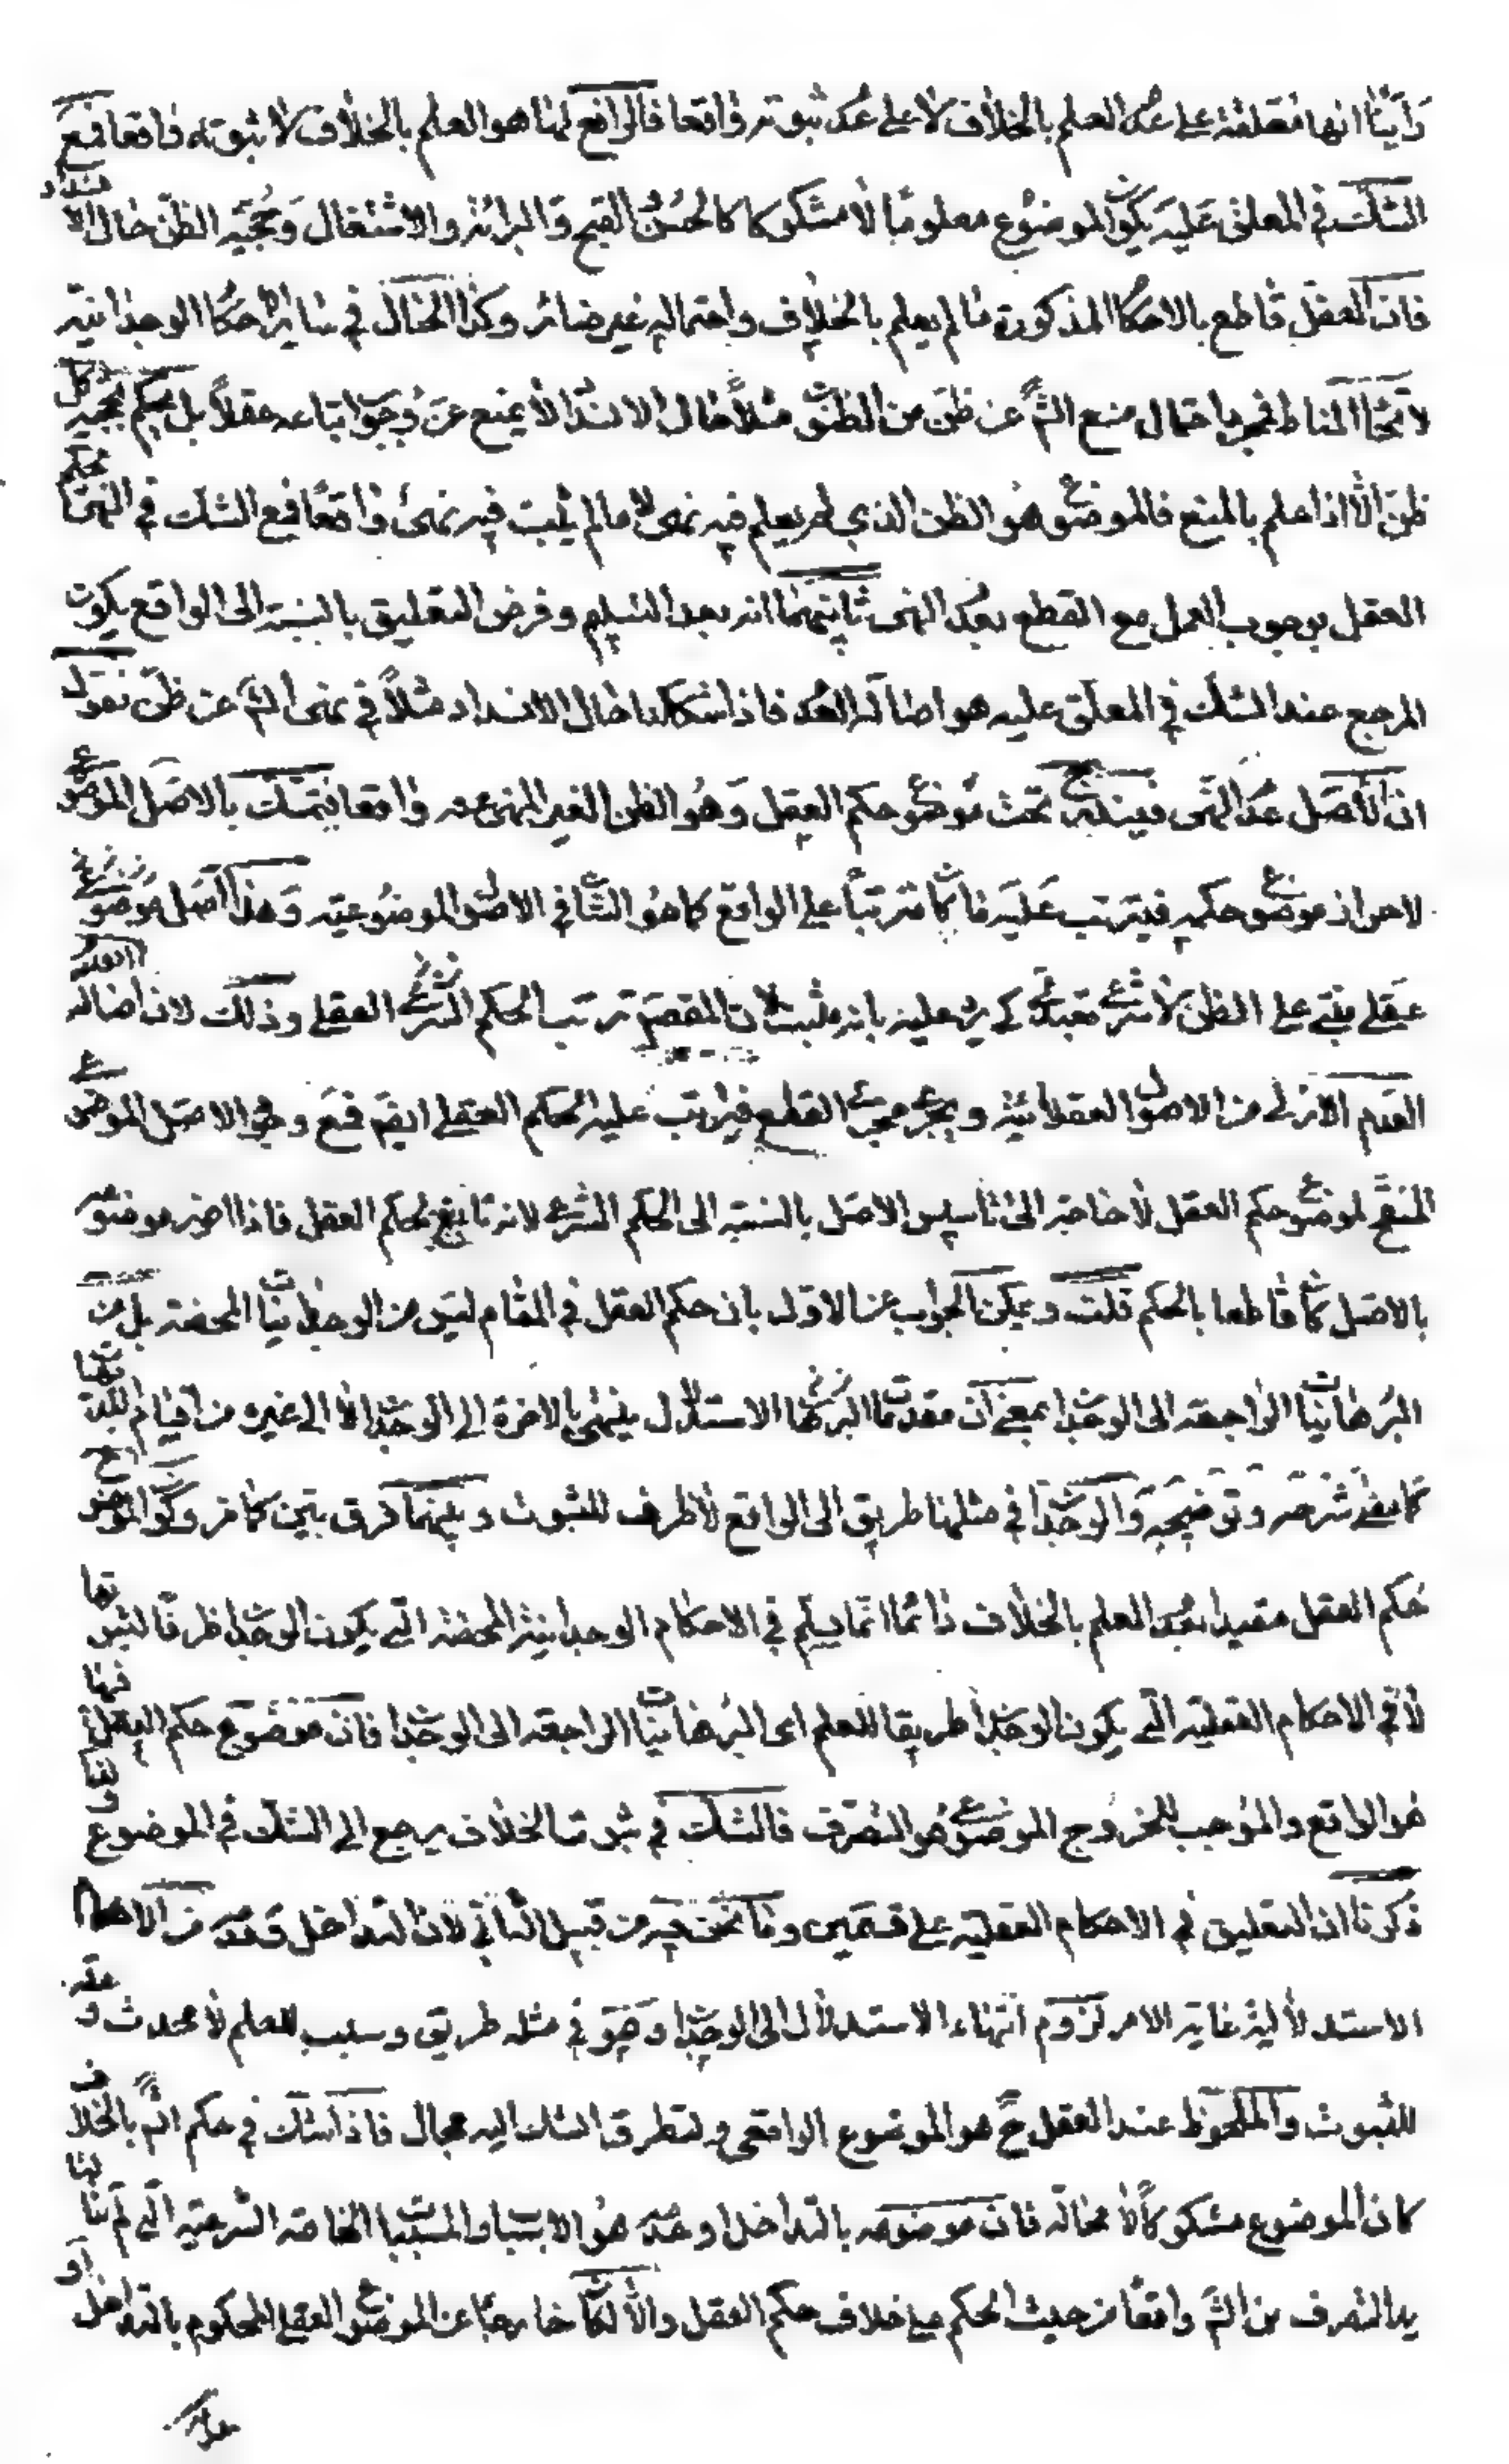 رأينا انها معلقة على عدم العلم بالخلاف لا على عدم ثبوته واقعا فالرافع لها هو العلم بالخلاف لا ثبوته واقعا فمع
الشك في المعلق عليه يكون الموضوع معلوما لا مشكوكا كالحسن القبح والبرائة والاشتغال وحجية الظن حال الانسداد
فان العقل قاطع بالاحكام المذكورة ما لم يعلم بالخلاف واحتماله غير ضائر وكذا الحال في سائر احكام الوجدانية
لاتحاد المناط فمجرد احتمال منع الش عن ظن من الظنون مثلا حال الانسداد لا يمنع عن وجوب اتباعه عقلا بل يحكم بحجية كل
ظن الا اذا علم بالمنع فالموضوع هو الظن الذي لم يعلم فيه نهي لا ما لم يثبت فيه نهي واقعا فمع الشك في النهي يحكم
العقل بوجوب العمل مع القطع بعدم النهي ثانيهما انه بعد التسليم وفرض التعليق بالنسبة الى الواقع يكون
المرجع عند الشك في المعلق عليه هو اصالة العدم فاذا شككنا حال الانسداد مثلا في نهي الش عن ظن نقول
ان الاصل عدم النهي فيندرج تحت موضوع حكم العقل وهو الظن الغير المنهي عنه واقعا فيتمسك بالاصل الموضوعي
لاحراز موضوع حكمه فيترتب عليه ما كان مترتبا على الواقع كما هو الشان في الاصول الموضوعية وهذا اصل موضوعي
عقلي مبني على الظن لا شرعي تعبدي كي يرد عليه بانه مثبت لان المقصود ترتب الحكم الشرعي العقلي وذلك لان اصالة العدم
العدم الازلي من الاصول العقلائية ويجري مجرى القطع فيترتب عليه الحكم العقلي ايضا فمع وجود الاصل الموضوعي
المنقح لموضوع حكم العقل لا حاجة الى تأسيس الاصل بالنسبة الى الحكم الشرعي لانه تابع لحكم العقل فاذا احرز موضوعه
بالاصل كان قاطعا بالحكم قلت ويمكن الجواب عن الاول بان حكم العقل في المقام ليس من الوجدانيات المحضة بل من
البرهانيات الراجعة الى الوجدان بمعنى ان مقدمات البرهان الاستدلال ينتهي بالاخرة الى الوجدان لا الى غيره من اقسام البديهيات
كما مضى شرحه وتوضيحه والوجدان في مثلها طريق الى الواقع لا ظرف للثبوت وبينهما فرق بين كما مر وكون الموضوع
حكم العقل مقيدا بعدم العلم بالخلاف دائما انما يسلم في الاحكام الوجدانية المحضة التي يكون الوجدان ظرفا لثبوتها
لا في الاحكام العقلية التي يكون الوجدان طريقا للعلم اي البرهانيات الراجعة الى الوجدان فان موضوع حكم العقل فيها
هو الواقع والموجب للخروج الموضوع هو التصرف فالشك في ثبوت الخلاف يرجع الى الشك في الموضوع وقد
ذكرنا ان التعليق في الاحكام العقلية على قسمين وما نحن فيه من قبيل الثاني لان التداخل وعدمه من الاحكام
الاستدلالية غاية الامر لزوم انتهاء الاستدلال الى الوجدان وهو في مثله طريق وسبب للعلم لا محدث وعلة
للثبوت والملحوظ عند العقل ح هو الموضوع الواقعي ولتطرق الشك اليه مجال فاذا شك في حكم الش بالخلاف
كان الموضوع مشكوكا لا محالة فان موضوعه بالتداخل وعدمه هو الاسباب والمسببات الخاصة الشرعية التي لم ينلها
يد التصرف من الش واقعا من حيث الحكم على خلاف حكم العقل والا لكان خارجا عن الموضوع العقلي المحكوم بالتداخل او